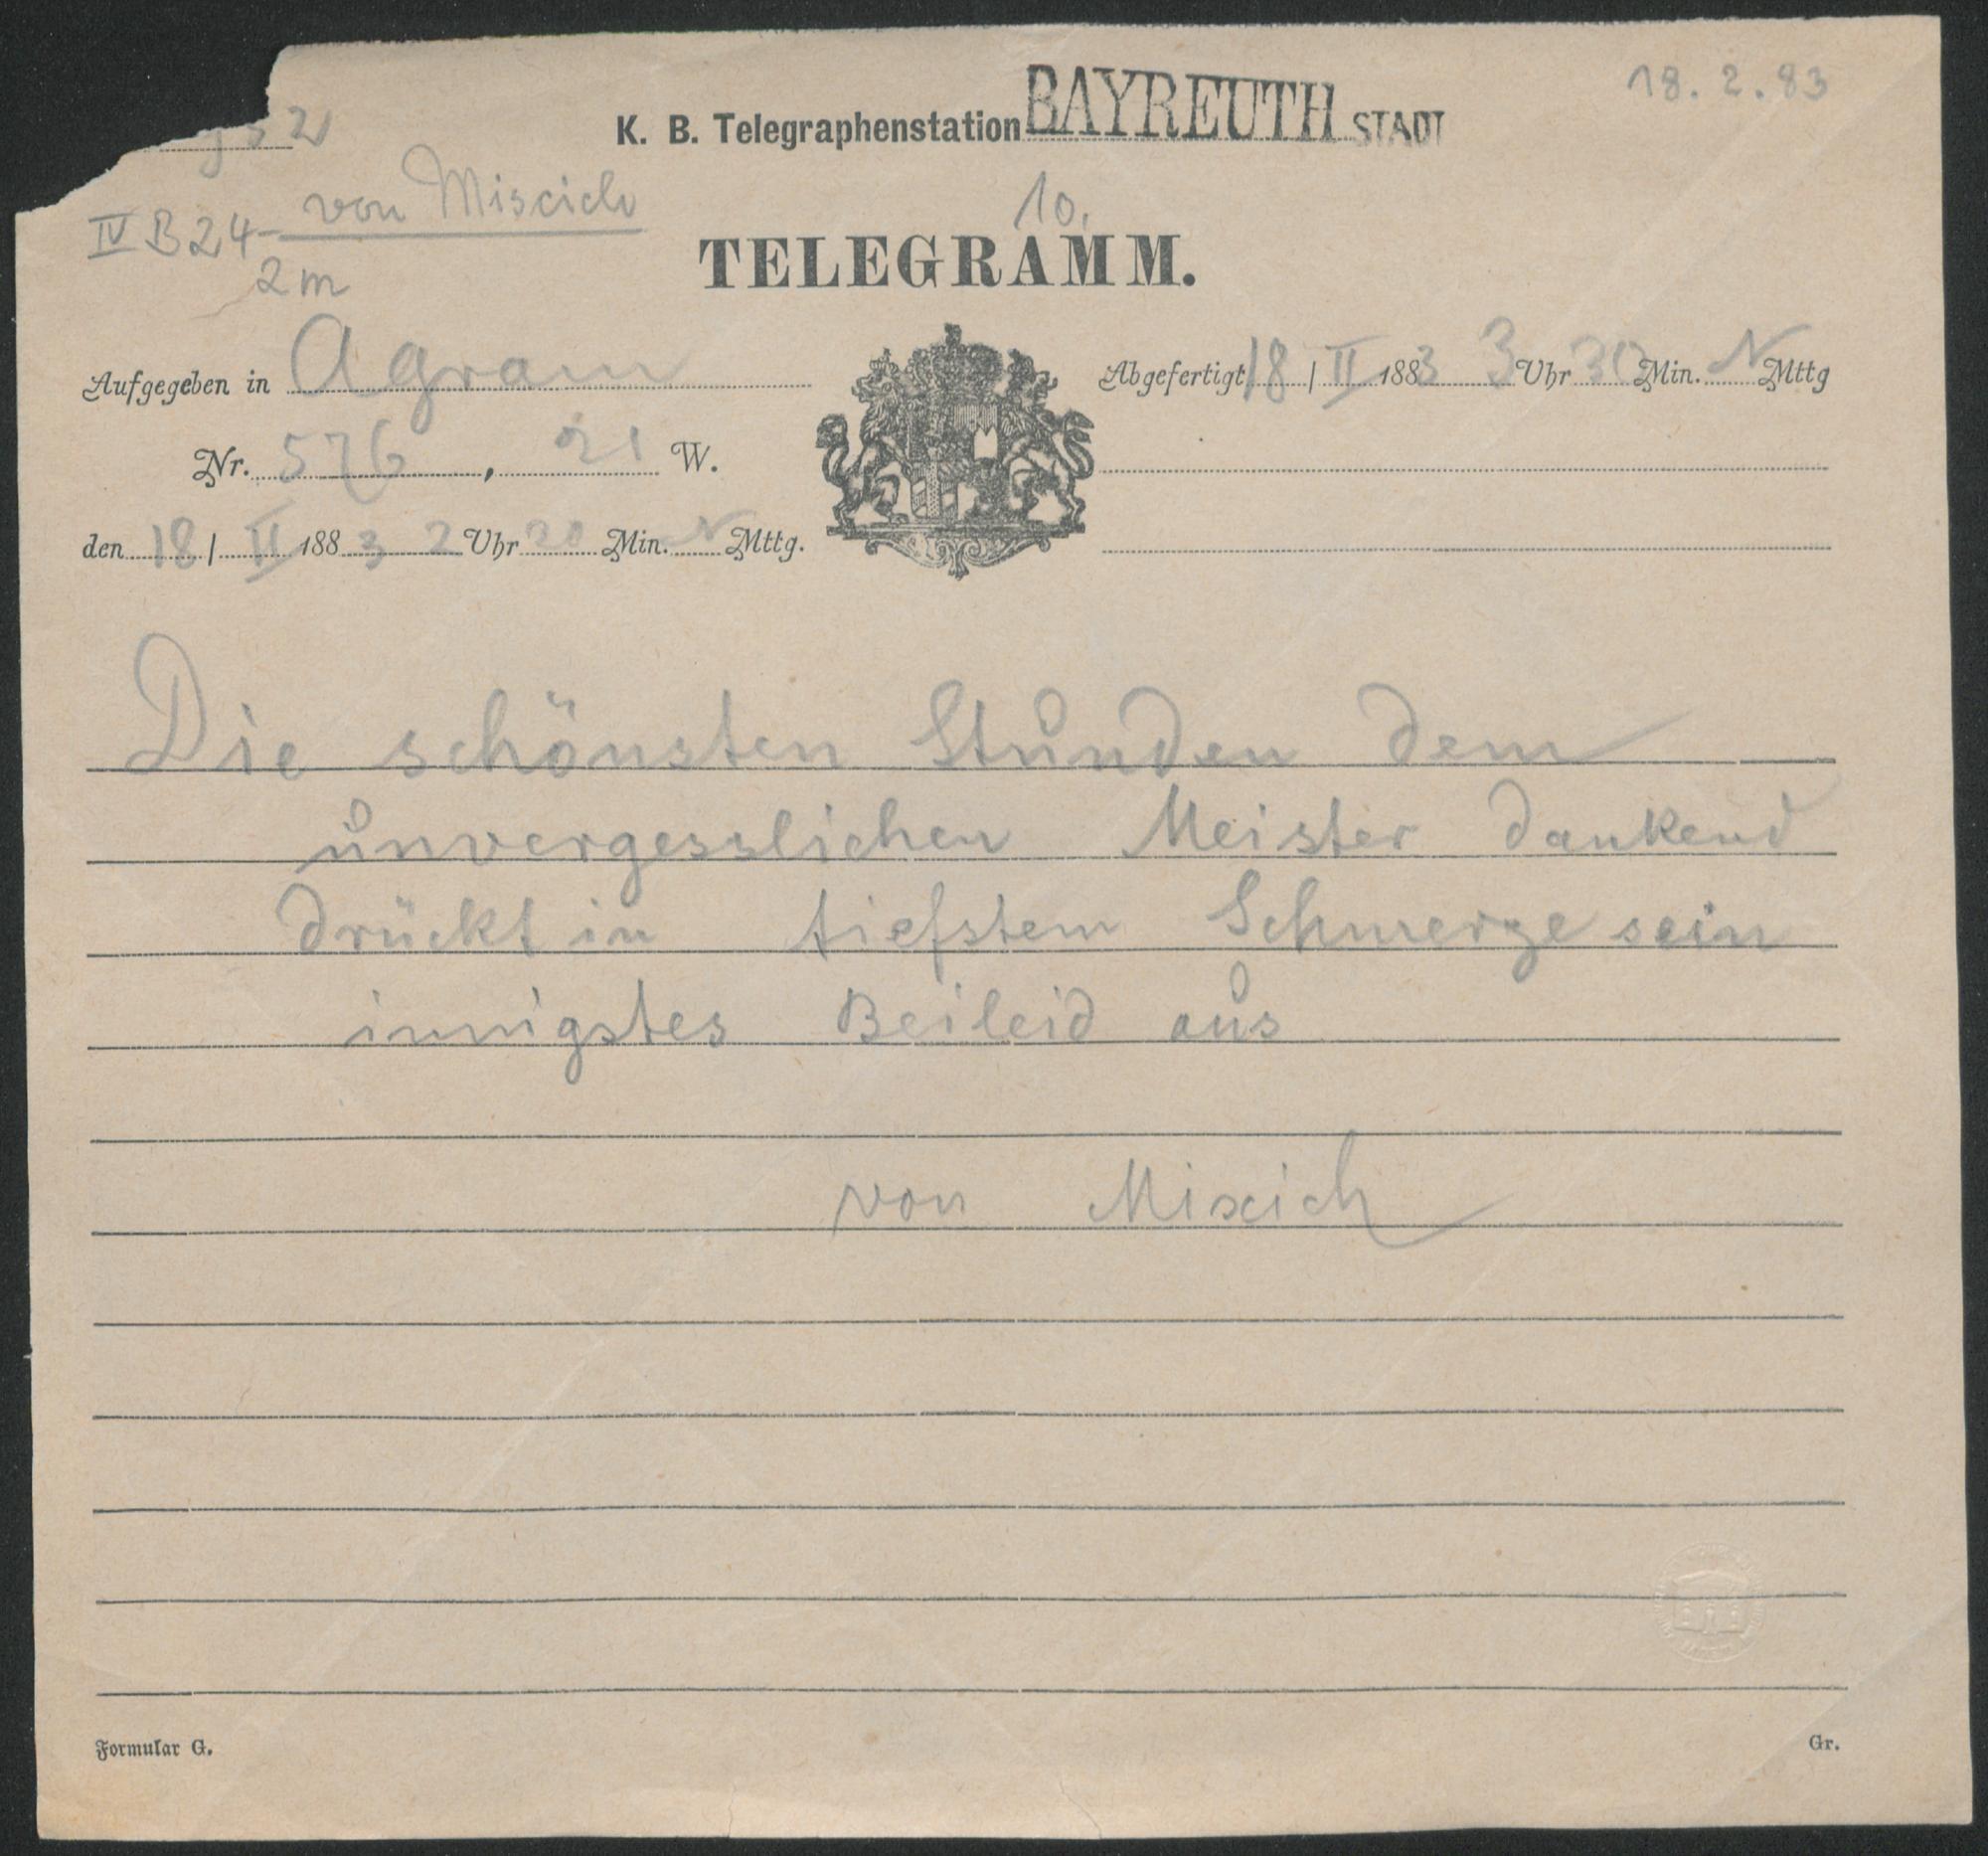 18. 2. 83
K. B. Telegraphenstation BAYREUTH STADT
IV B 24 - von Miscich
2 m
10.
TELEGRAMM.
Aufgegeben in Agram
Abgefertigt 18 / II 1883 3 Uhr 30 Min. N Mttg
Nr. 576, 21 W.
den 18 / II 1883 2 Uhr 20 Min. N Mttg.
Die schönsten Stunden dem
unvergesslichen Meister dankend
drückt in tiefstem Schmerze sein
innigstes Beileid aus
von Mixich
Formular G.
Gr.